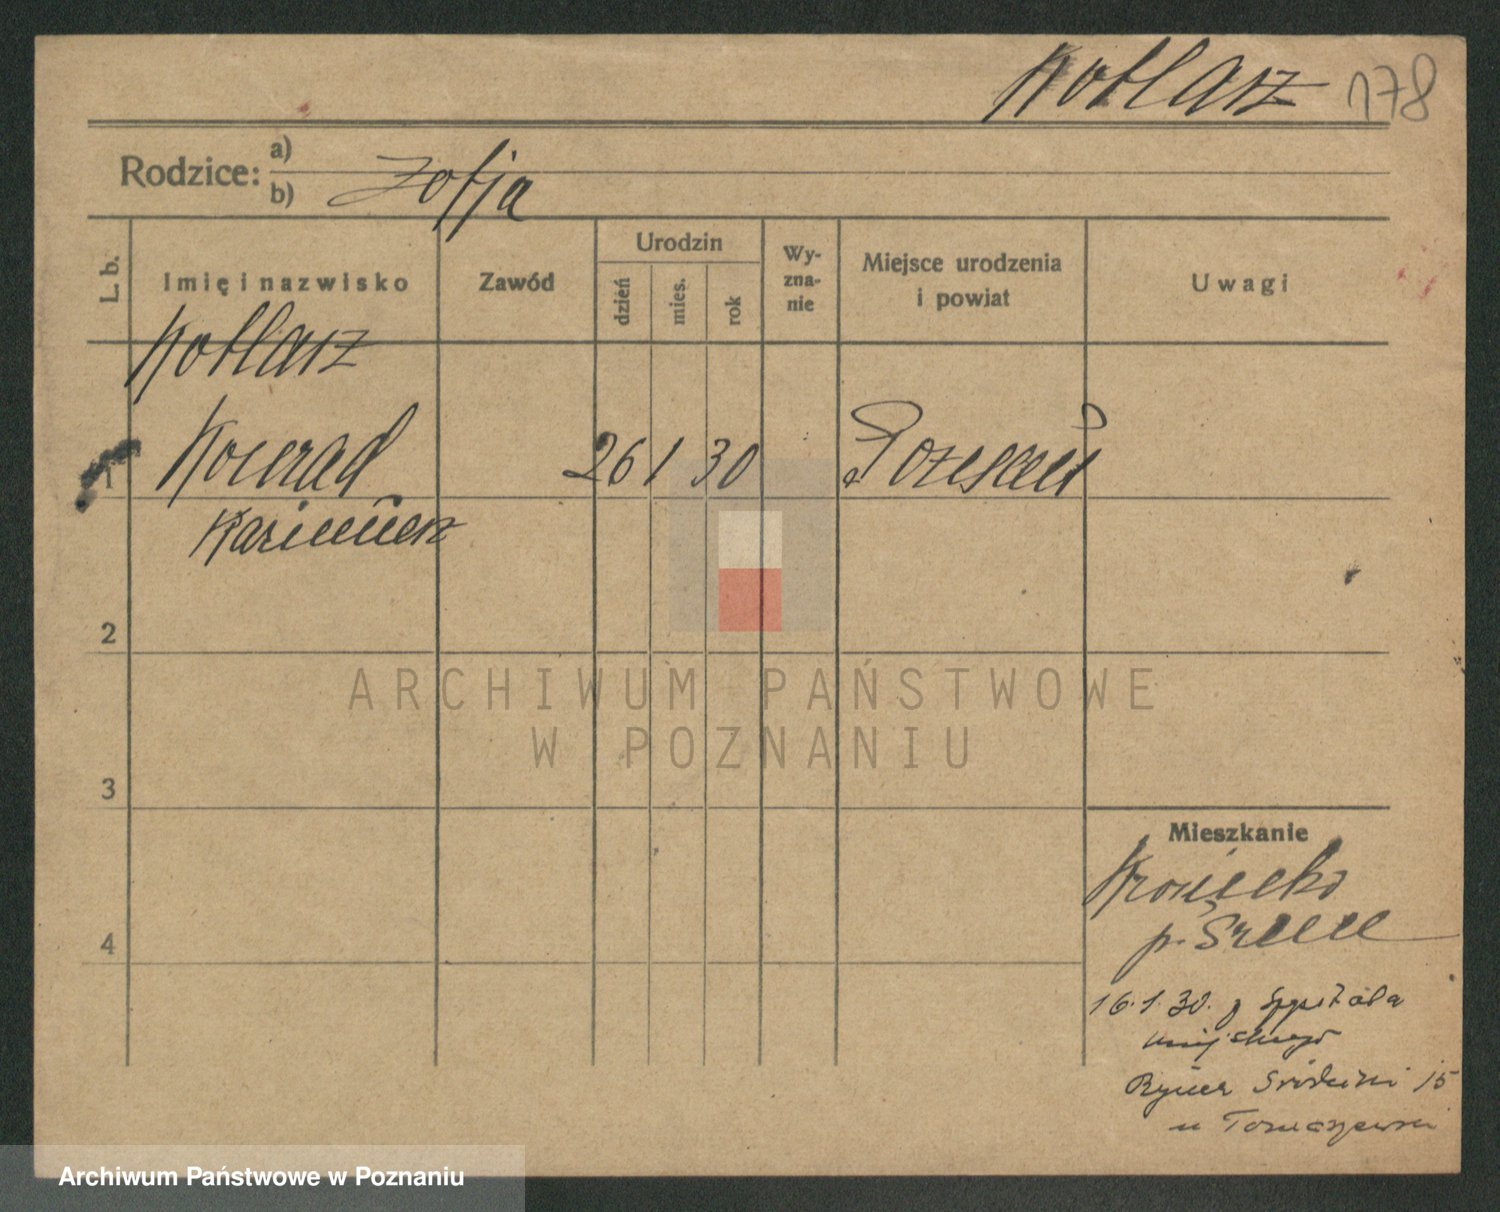 Kotlarz 178
Rodzice: a)
b) Zofja
L. b.
Imię i nazwisko
Zawód
Urodzin
dzień
mies.
rok
Wy-
zna-
nie
Miejsce urodzenia
i powiat
Uwagi
Kotlarz
1 Konrad 26 1 30 Poznań
Kazimierz
2
3
4
Mieszkanie
p. Śrem
16.1.30. z Szpitala
miejskiego
Rynek Śródecki 15
u Tomaszewski
ARCHIWUM PAŃSTWOWE
W POZNANIU
Archiwum Państwowe w Poznaniu